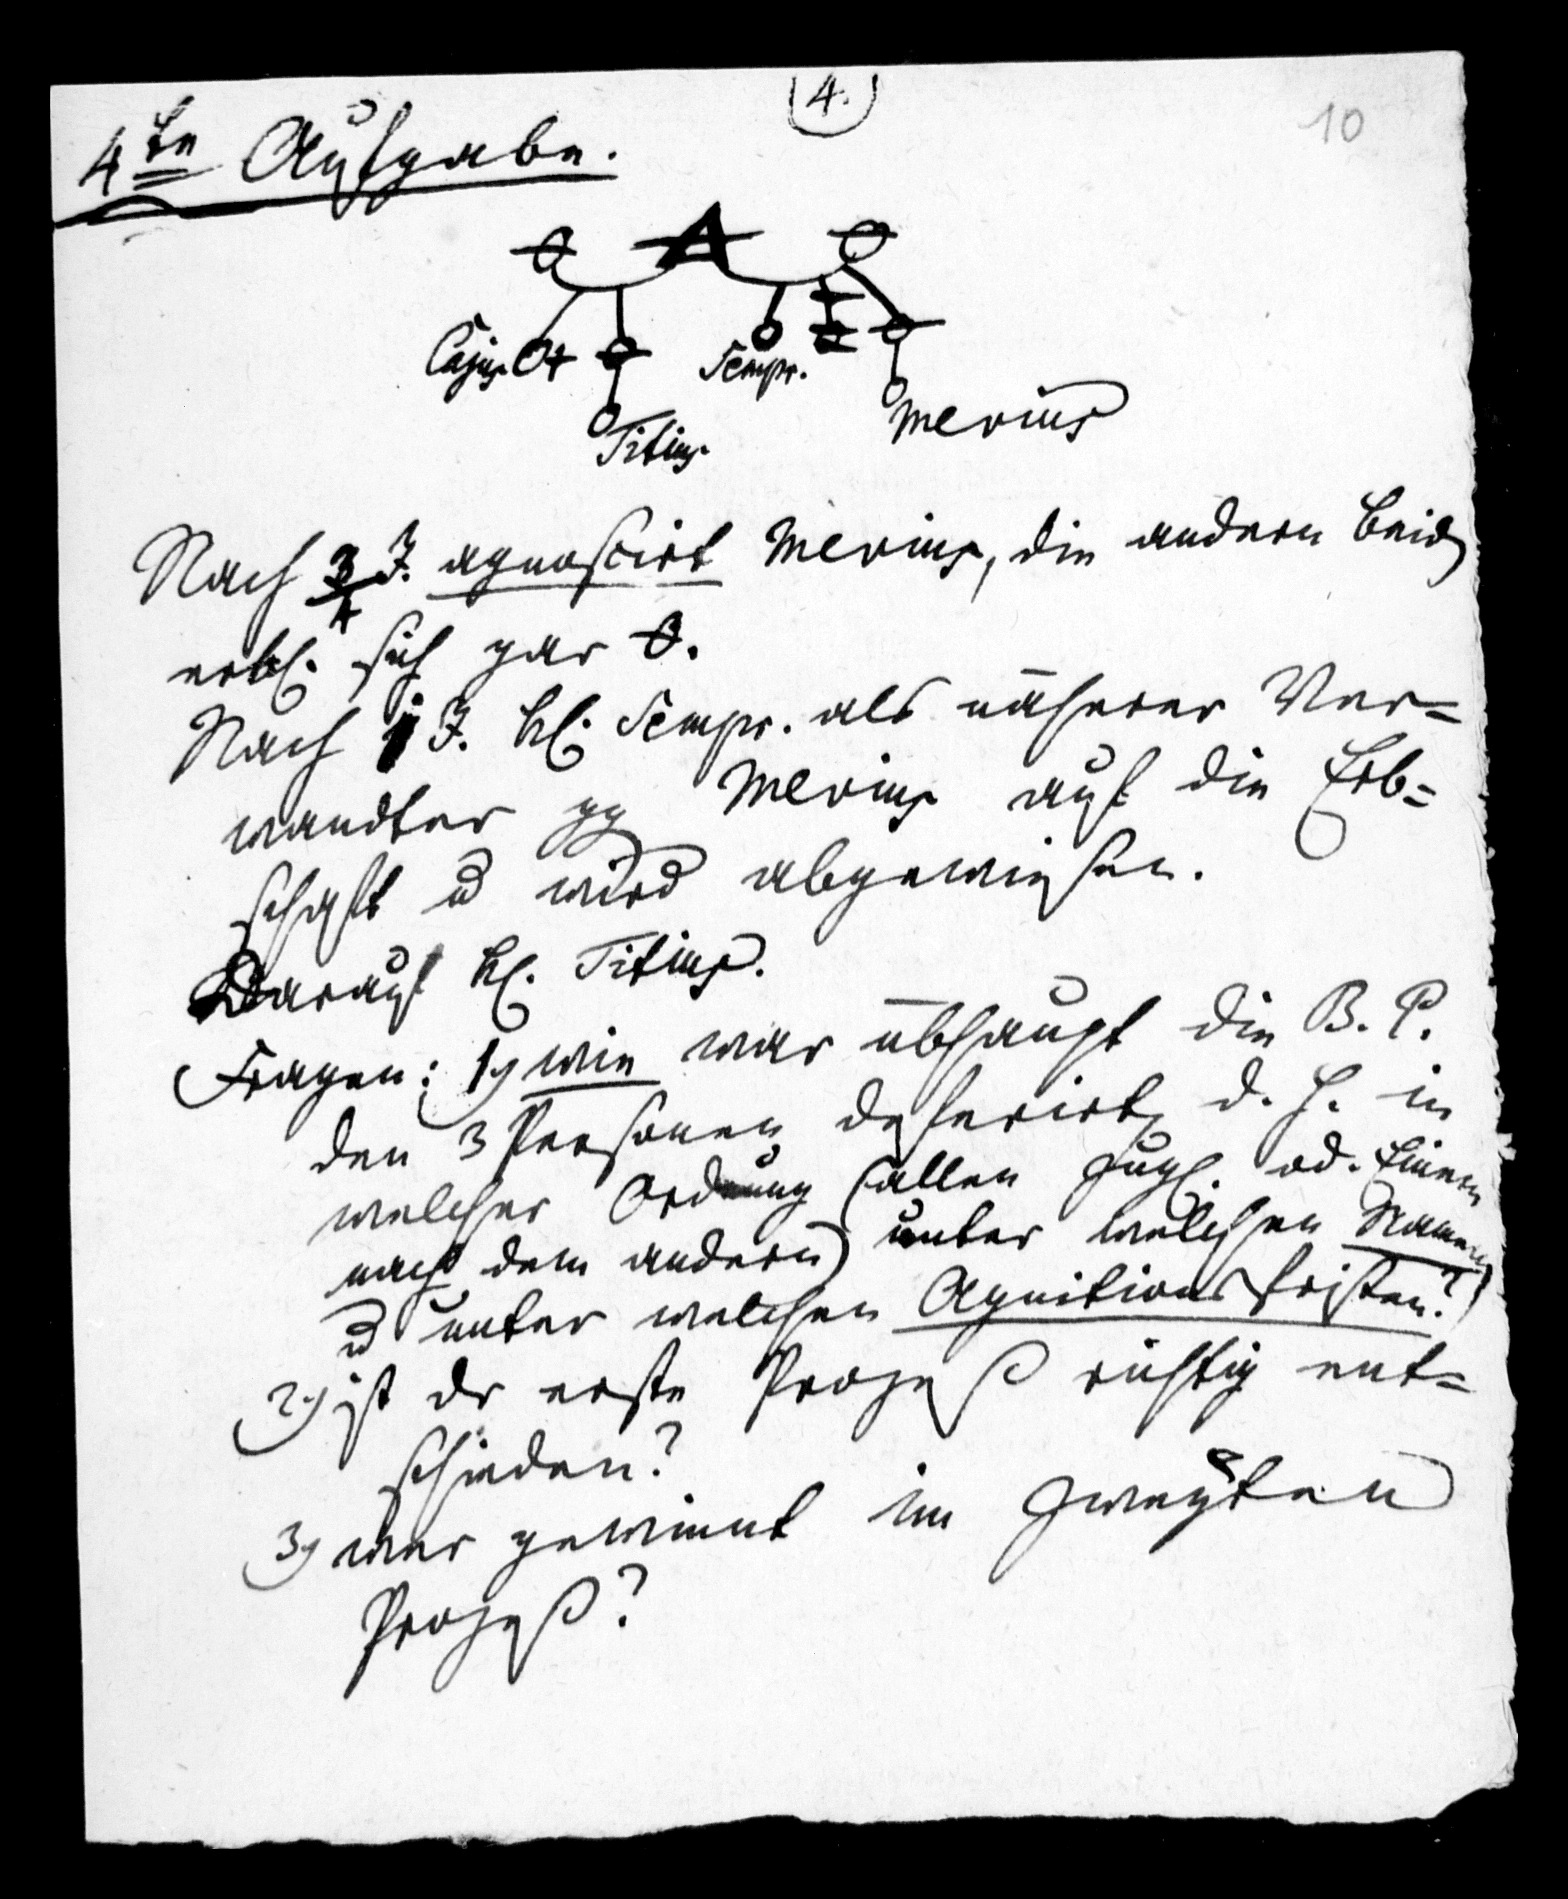 4.
10
4te Aufgabe.
A
Cajus
Sempr.
Mevius
Titius
Nach 3/4 J. agnoscirt Mevius, die andern beid
erkl. sich gar 0.
Nach 1 J. kl. Sempr. als näherer Ver=
wandter gg Mevius auf die Erb=
schaft u wird abgewiesen.
Darauf kl. Titius.
Fragen: 1) wie war übhaupt die B. P.
den 3 Personen deferirt, d. h. in
welcher Ordnung (allen zugl. od. Einem
nach dem andern) unter welchen Namen
u unter welchen Agnitionsfristen?
2) ist dr erste Prozeß richtig ent=
schieden?
3) wer gewinnt im zweyten
Prozeß?